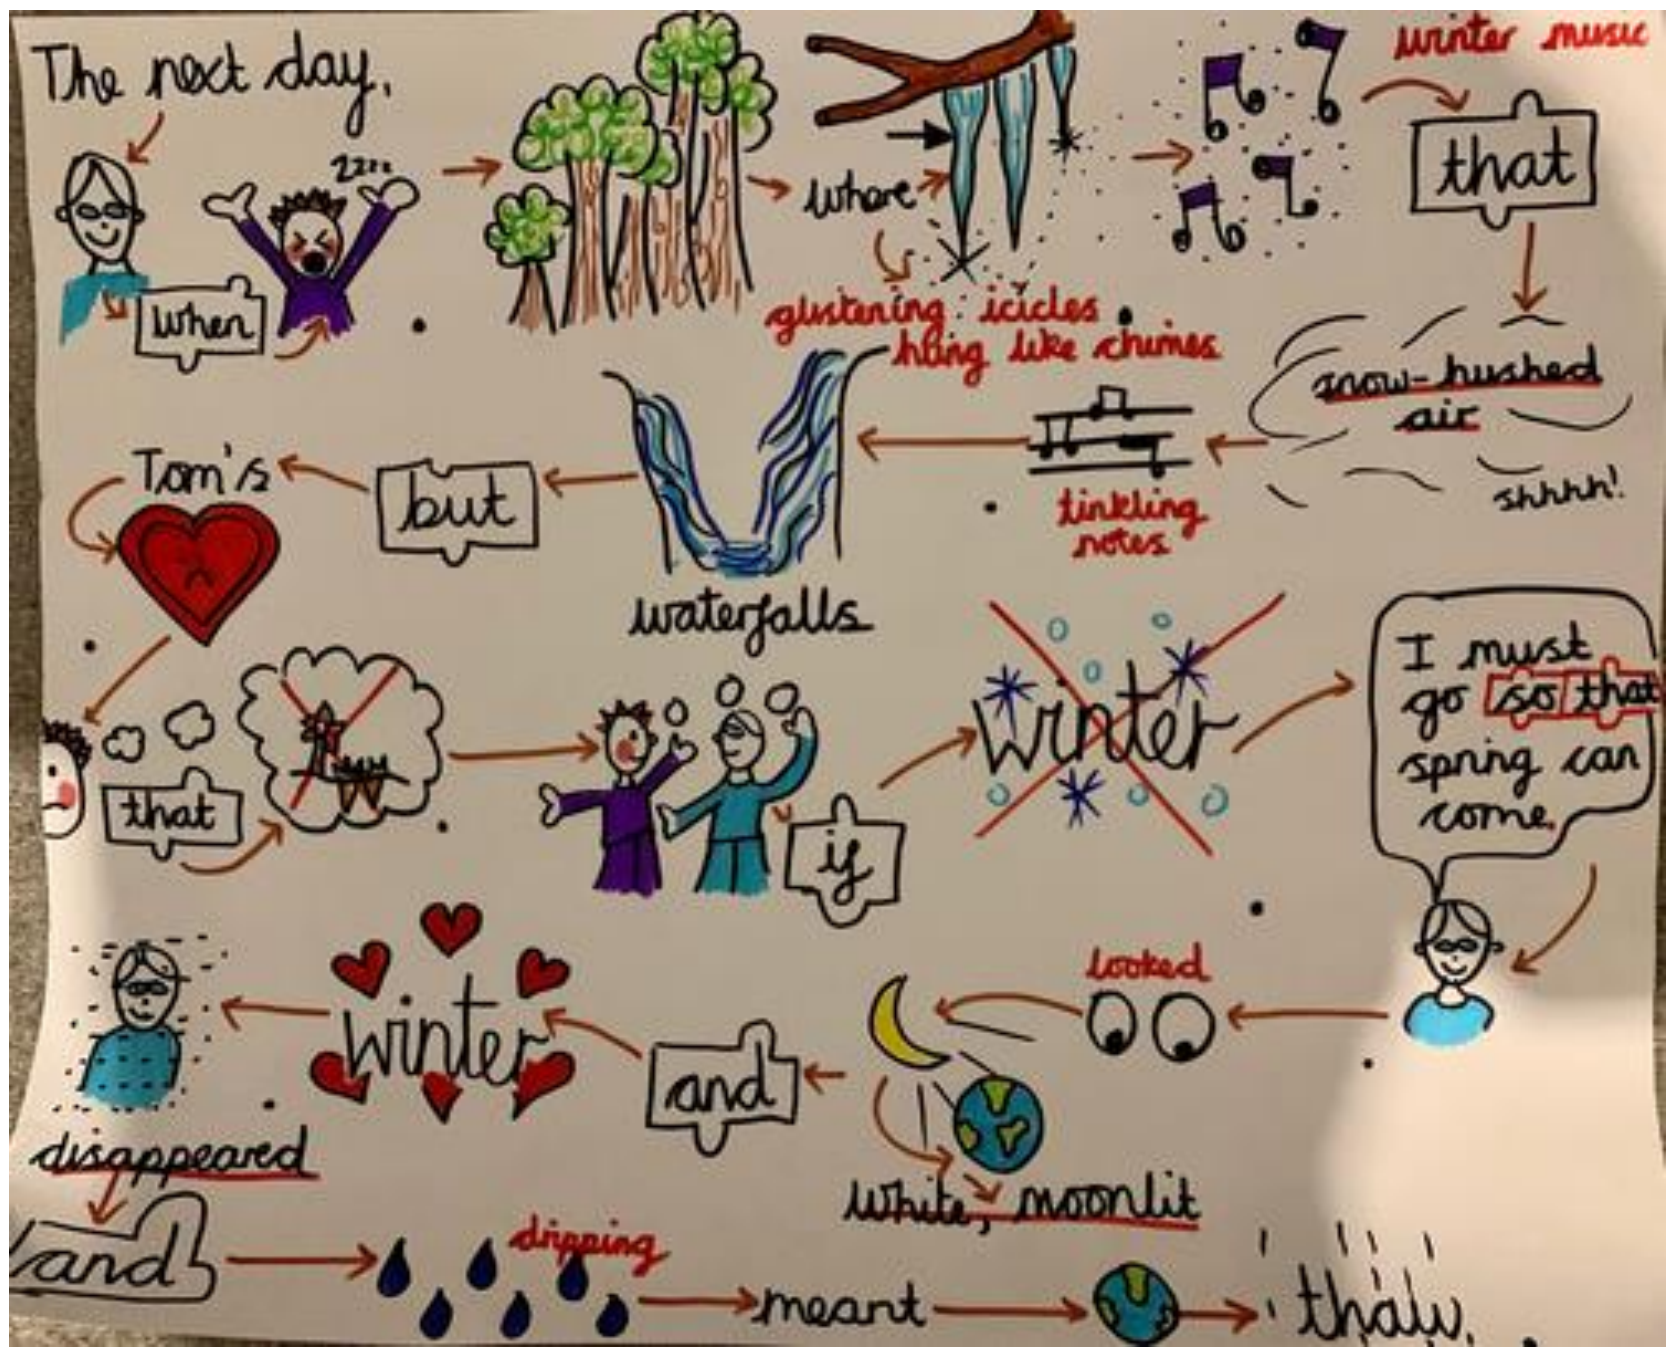 The next day,
when
zzzz
where
glistening icicles
hung like chimes
winter music
that
snow-hushed
air
shhhh!
tinkling
notes
waterfalls
but
Tom's
that
if
winter
I must
go so that
spring can
come.
looked
white, moonlit
and
winter
disappeared
and
dripping
meant
thaw.